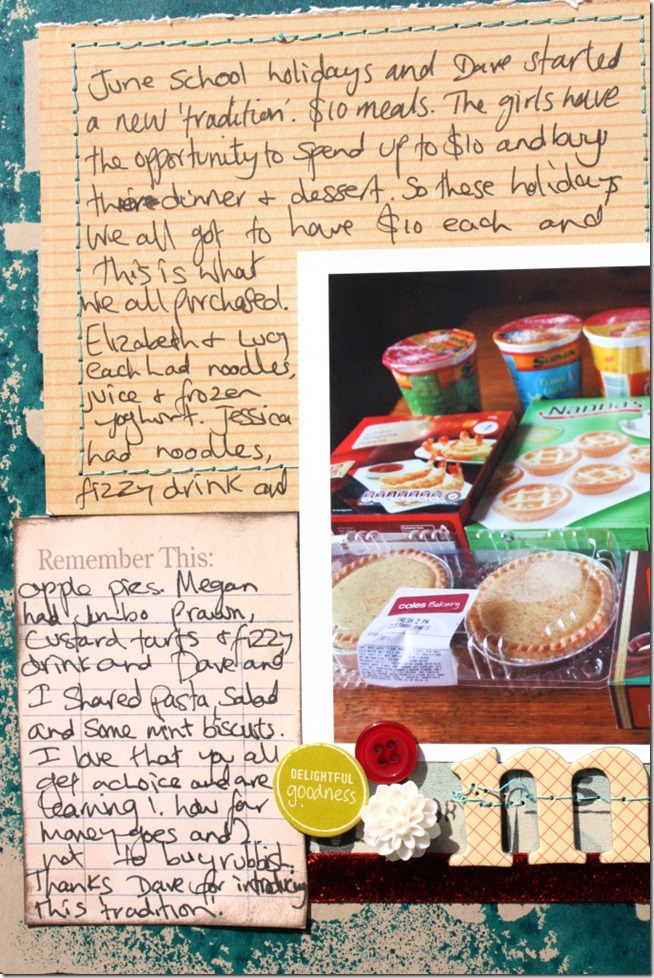 June School holidays and Dave started
a new 'tradition'. $10 meals. The girls have
the opportunity to spend up to $10 and buy
their dinner & dessert. So these holidays
we all got to have $10 each and
this is what
we all purchased.
Elizabeth & Lucy
each had noodles,
juice & frozen
yoghurt. Jessica
had noodles,
fizzy drink and
Remember This:
apple pies. Megan
had Jumbo Prawn,
Custard tarts & fizzy
drink and Dave and
I shared pasta, Salad
and some mint biscuits.
I love that you all
get a choice and are
learning 1. how far
money goes and 2
not to buy rubbish.
Thanks Dave for introducing
this 'tradition'.
Nanna's
coles Bakery
FRESH 2 PK
CUSTARD
DELIGHTFUL
goodness
m